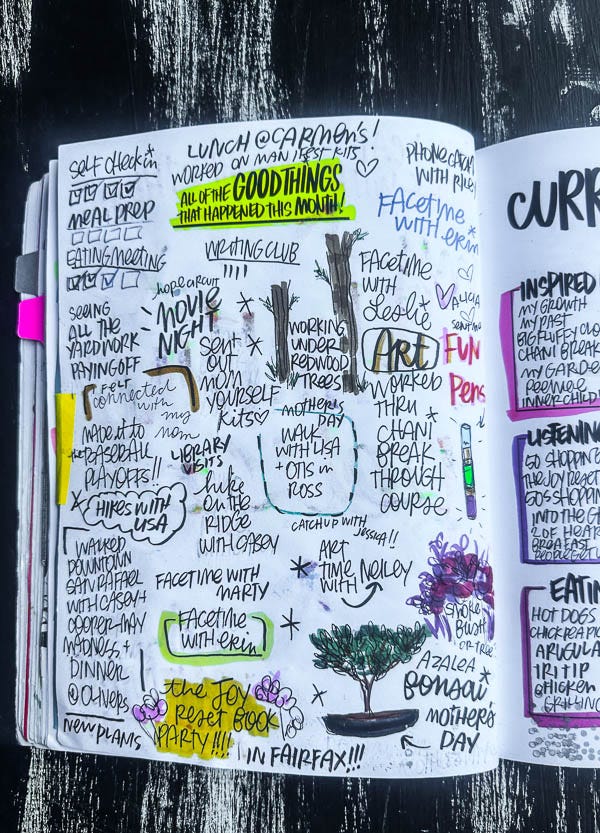 LUNCH @ CARMEN'S!
WORKED ON MANIFEST KITS
ALL OF THE GOOD THINGS
THAT HAPPENED THIS MONTH!
self check in
MEAL PREP
EATING MEETING
SEEING
ALL THE
YARD WORK
PAYING OFF
FELT
connected
with
my
mom
MADE IT TO
the BASEBALL
PLAYOFFS!!
HIKES WITH
LISA
WALKED
DOWNTOWN
SAN RAFAEL
WITH CASEY +
COOPER-MAY
MADNESS +
DINNER
@ OLIVERS
NEW PLANTS
WRITING CLUB
hope circuit
MOVIE
NIGHT
SENT
OUT
MOM
YOURSELF
KITS
LIBRARY
VISITS
hike
ON THE
RIDGE
WITH CASEY
FACETIME WITH
MARTY
FACETIME
WITH erin
the JOY
RESET BOOK
PARTY!!!!
IN FAIRFAX!!!
WORKING
UNDER
REDWOOD
TREES
MOTHER'S
DAY
WALK
WITH LISA
+ OTIS in
ROSS
CATCH UP WITH
Jessica!!
ART
TIME
WITH
NELLEY
PHONE CATCH
WITH RILEY
FACETIME
WITH erin
FACETIME
WITH
Leslie
ALICIA
sent me
FUN
Pens
ART
WORKED
THRU
CHANI
BREAK
THROUGH
COURSE
SMOKE
BUSH
OR TREE
AZALEA
BONSAI
MOTHER'S
DAY
CURR
INSPIRED
MY GROWTH
MY PAST
BIG FLUFFY CLO
CHANI BREAK
MY GARDE
PEEWEE
INNER CHILD
LISTENING
50 SHOPPIN
THE JOY RESET
50S SHOPPIN
INTO THE G
2 OF HEAR
BREAKFAST
EATIN
HOT DOGS
CHICKPEA PIC
ARUGULA
TRI TIP
CHICKEN
GRILLING